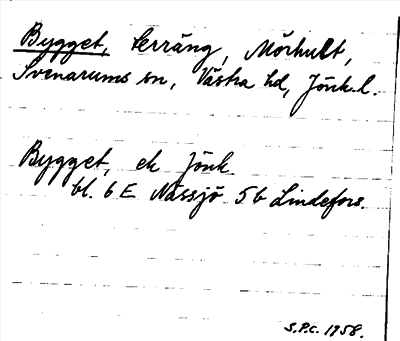 Bygget, terräng, Mörhult,
Svenarums sn, Västra hd, Jönk. l.
Bygget, ek Jönk
bl. 6 E Nässjö 5b Lindefors.
S.P.C. 1958.